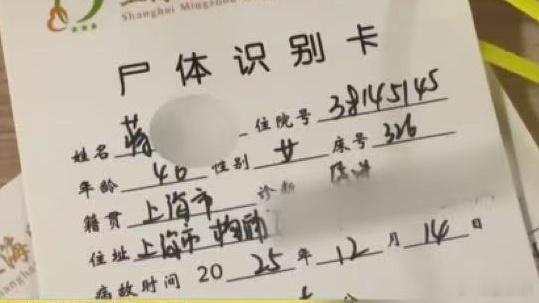 Shanghai Mingzhou
尸体识别卡
姓名 蒋 住院号 38145145
年龄 46 性别 女 床号 326
籍贯 上海市 诊断
住址 上海市
病故时间 2025年12月14日